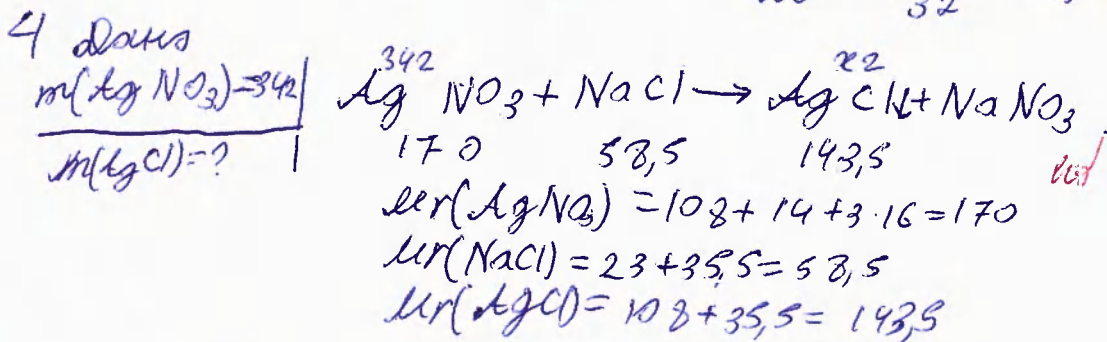 32
4 Дано
m(AgNO₃)=34г
AgNO₃ + NaCl → AgCl + NaNO₃
34г хг
m(AgCl)=?
170 58,5 143,5
Mr(AgNO₃) = 108 + 14 + 3·16 = 170
Mr(NaCl) = 23 + 35,5 = 58,5
Mr(AgCl) = 108 + 35,5 = 143,5